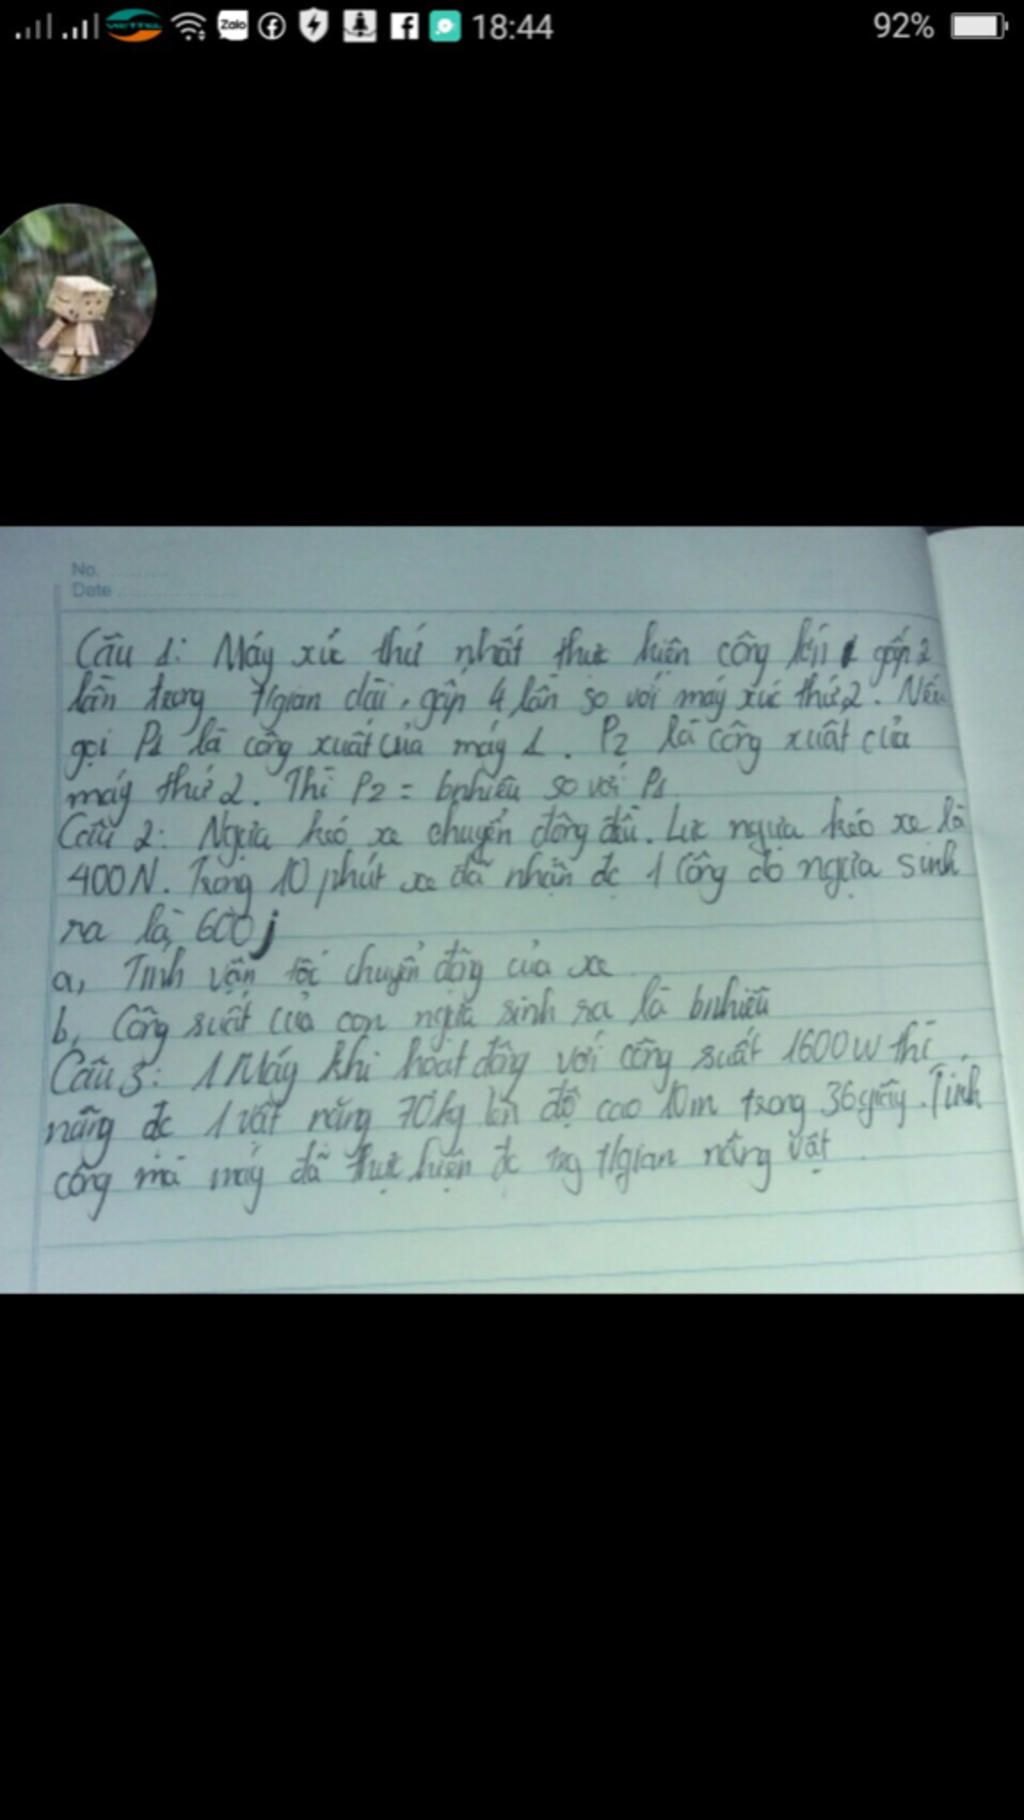 VIETTEL Zalo 18:44 92%
No.
Date
Câu 1: Máy xúc thứ nhất thực hiện công lớn gấp 2
lần trong t/gian dài, gấp 4 lần so với máy xúc thứ 2. Nếu
gọi P1 là công xuất của máy 1. P2 là công xuất của
máy thứ 2. Thì P2 = bnhiêu so với P1
Câu 2: Ngựa kéo xe chuyển động đều. Lực ngựa kéo xe là
400N. Trong 10 phút xe đã nhận đc 1 công do ngựa sinh
ra là 600j
a, Tính vận tốc chuyển động của xe
b, Công suất của con ngựa sinh ra là bnhiêu
Câu 3: 1 Máy khi hoạt động với công suất 1600w thì
nâng đc 1 vật nặng 70kg lên độ cao 10m trong 36giây. Tính
công mà máy đã thực hiện đc tng t/gian nâng vật